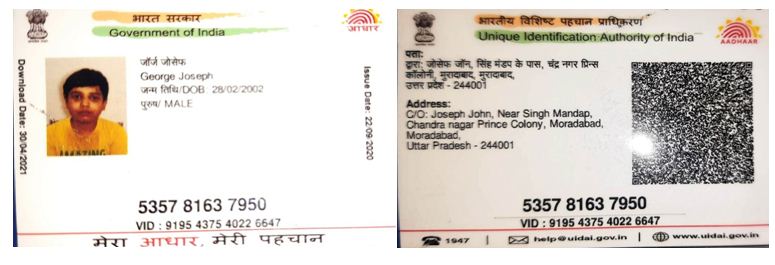 भारत सरकार
Government of India
आधार
जॉर्ज जोसेफ
George Joseph
जन्म तिथि/DOB 28/02/2002
पुरुष/ MALE
Download Date: 30/04/2021
Issue Date: 22/09/2020
5357 8163 7950
VID : 9195 4375 4022 6647
मेरा आधार, मेरी पहचान
भारतीय विशिष्ट पहचान प्राधिकरण
Unique Identification Authority of India
AADHAAR
पता:
द्वारा: जोसेफ जॉन, सिंह मंडप के पास, चंद्र नगर प्रिन्स
कॉलोनी, मुरादाबाद, मुरादाबाद,
उत्तर प्रदेश - 244001
Address:
C/O: Joseph John, Near Singh Mandap,
Chandra nagar Prince Colony, Moradabad,
Moradabad,
Uttar Pradesh - 244001
5357 8163 7950
VID : 9195 4375 4022 6647
1947 | help@uidai.gov.in | www.uidai.gov.in